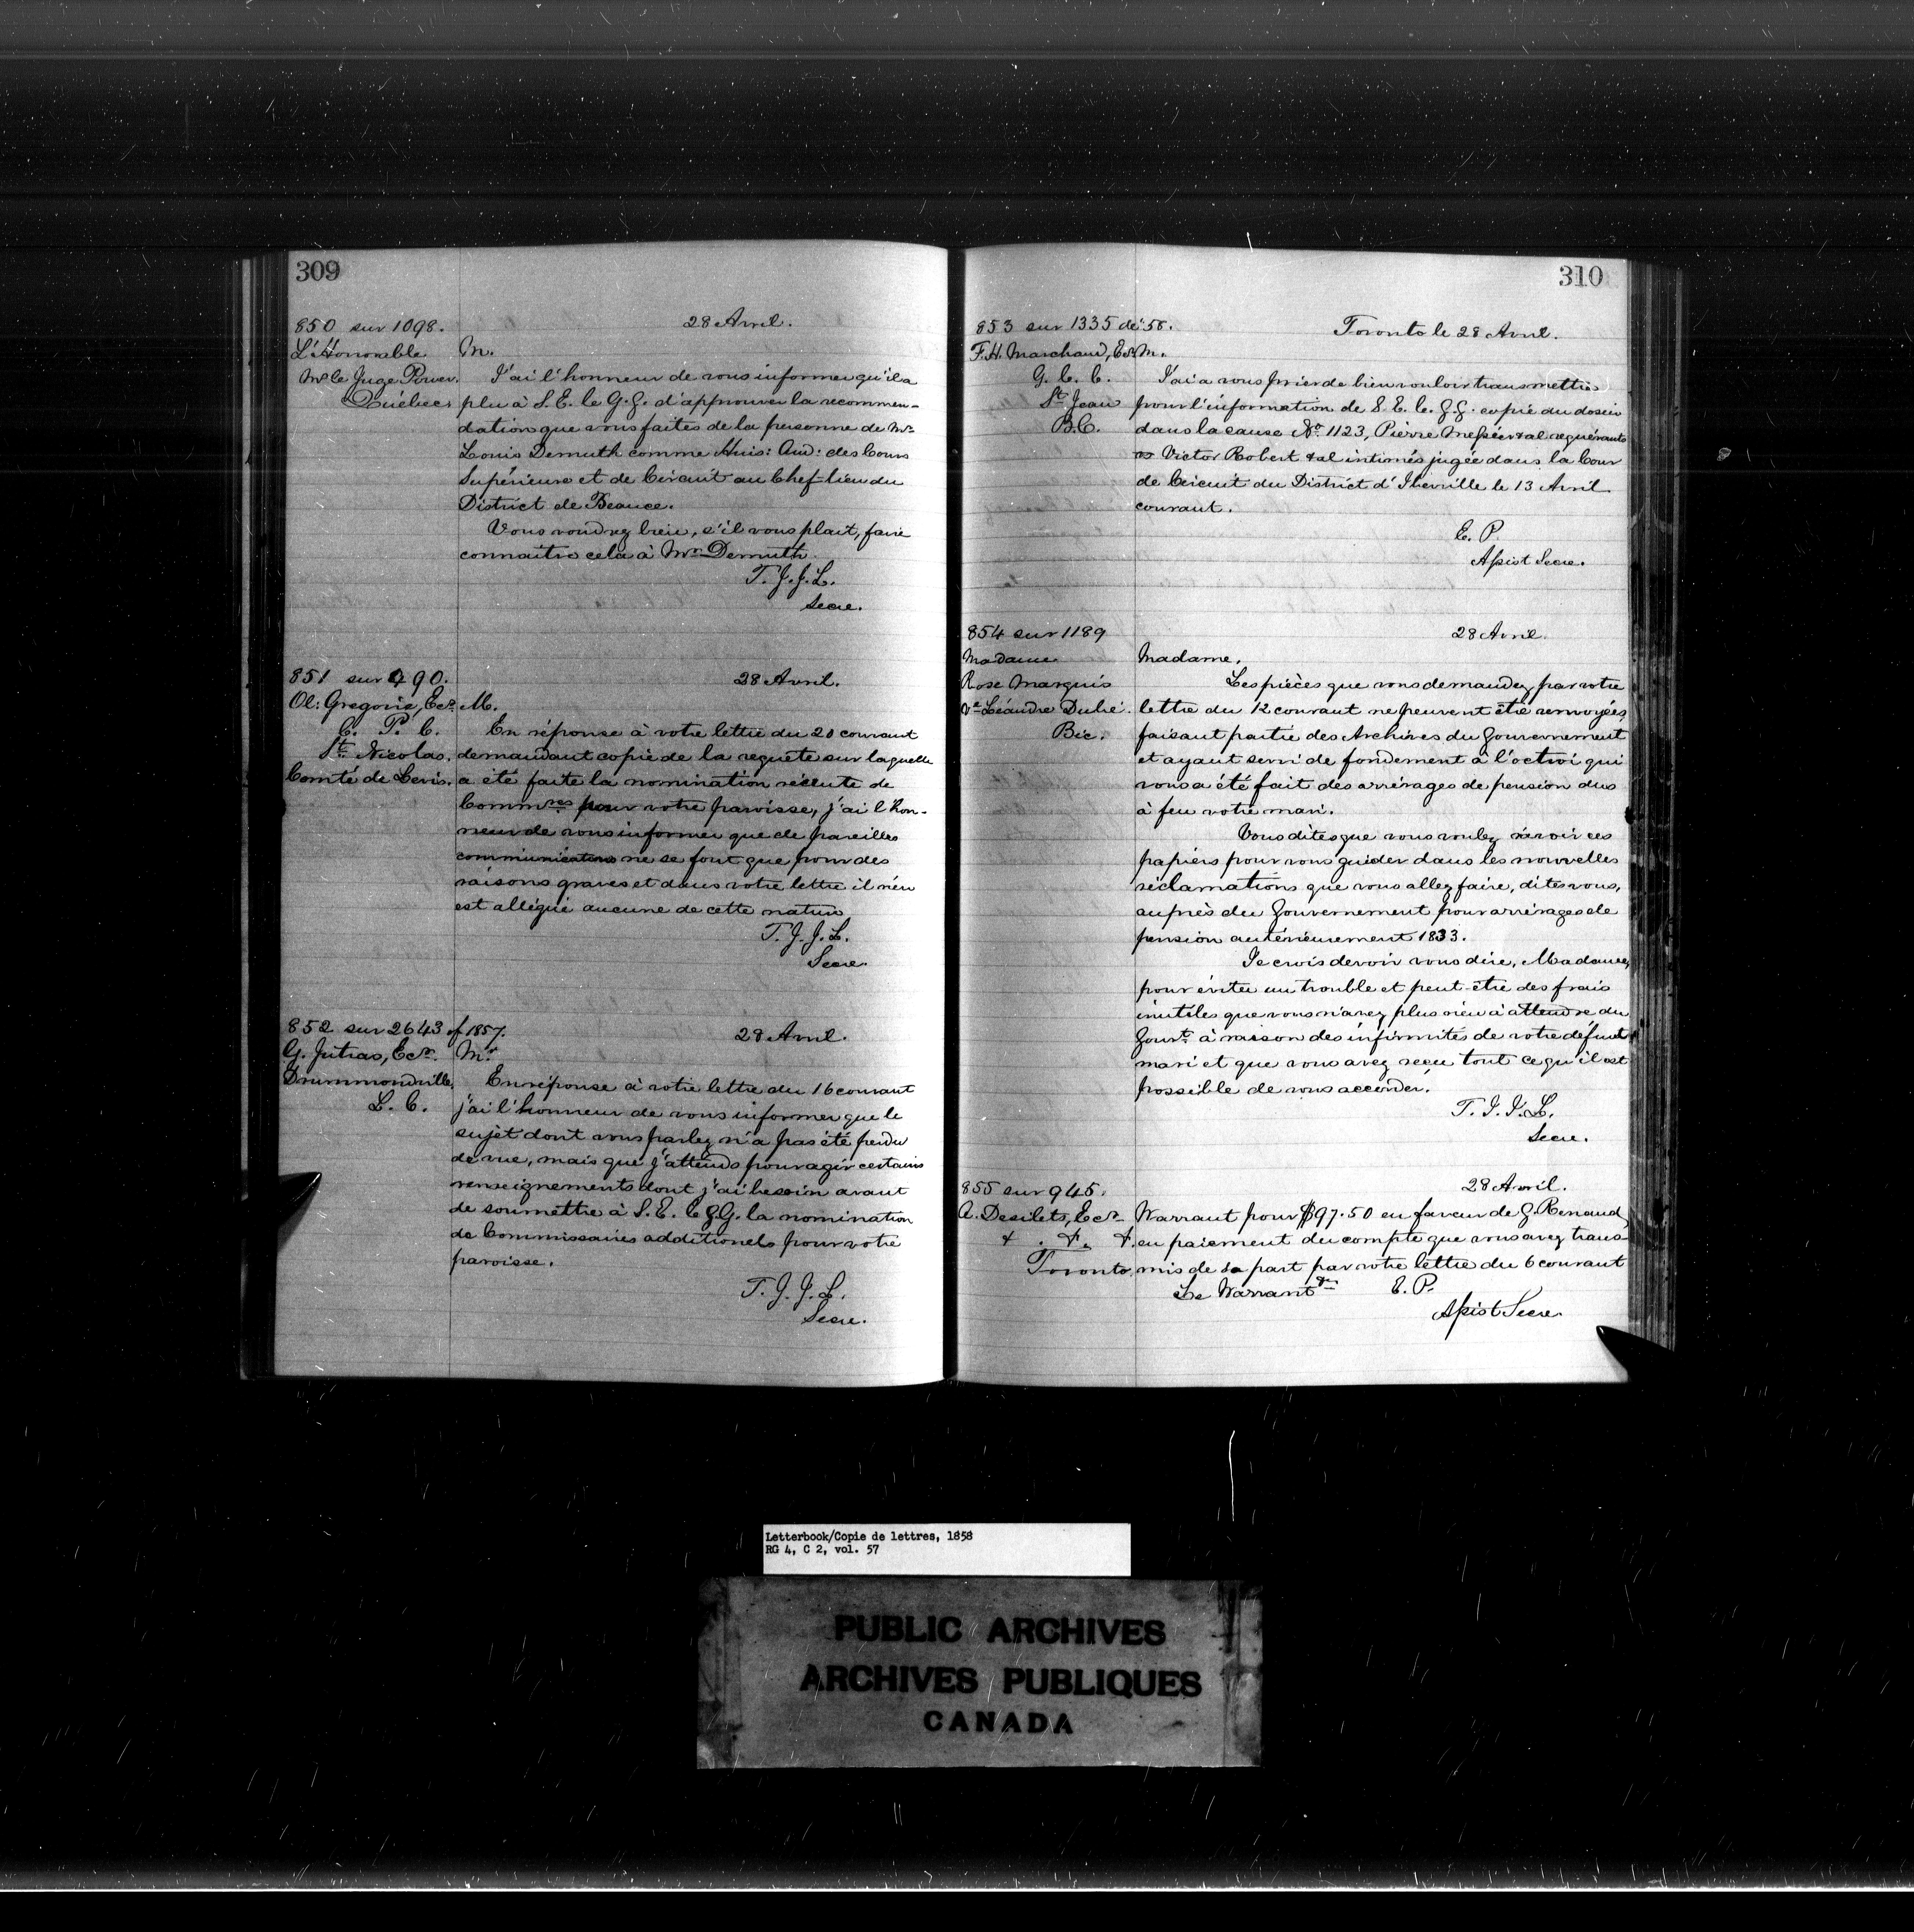 309
850 sur 1098.
L'Honorable
Mr le Juge Power.
Québec.
28 Avril.
M.
J'ai l'honneur de vous informer qu'il a
plu à S. E. le G. G. d'approuver la recommen-
dation que vous faites de la personne de Mr
Louis Demuth comme Huis: Aud: des Cours
Supérieure et de Circuit au Chef-lieu du
District de Beauce.
Vous voudrez bien, s'il vous plait, faire
connaitre cela à Mr Demuth.
T. J. J. L.
Secre.
851 sur 490.
Ol: Gregoire, Ecr.
C. P. C.
St. Nicolas.
Comté de Levis.
28 Avril.
M.
En réponse à votre lettre du 20 courant
demandant copie de la requête sur laquelle
a été faite la nomination récente de
Commres pour votre paroisse, j'ai l'hon-
neur de vous informer que de pareilles
communications ne se font que pour des
raisons graves et dans votre lettre il n'en
est allégué aucune de cette nature
T. J. J. L.
Secre.
852 sur 2643 of 1857.
G. Jutras, Ecr.
Drummondville.
L. C.
28 Avril.
Mr
En réponse à votre lettre du 16 courant
j'ai l'honneur de vous informer que le
sujet dont vous parlez n'a pas été perdu
de vue, mais que j'attends pour agir certains
renseignements dont j'ai besoin avant
de soumettre à S. E. le G. G. la nomination
de Commissaires additionels pour votre
paroisse.
T. J. J. L.
Secre.
310
853 sur 1335 de '58.
F. H. Marchand, Ecr
G. C. C.
St. Jean
B. C.
Toronto le 28 Avril.
M.
J'ai a vous prier de bien vouloir transmettre
pour l'information de S. E. le G. G. copie du dosier
dans la cause No. 1123, Pierre Messier & al requérants
vs Victor Robert & al intimés jugée dans la Cour
de Circuit du District d'Iberville le 13 Avril
courant.
E. P.
Assist Secre.
854 sur 1189
Madame
Rose Marquis
Ve Léandre Dubé.
Bic.
28 Avril.
Madame,
Les pièces que vous demandez par votre
lettre du 12 courant ne peuvent être renvoyées
faisant partie des Archives du Gouvernement
et ayant servi de fondement à l'octroi qui
vous a été fait des arrérages de pension dus
à feu votre mari.
Vous dites que vous voulez ravoir ces
papiers pour vous guider dans les nouvelles
réclamations que vous allez faire, dites vous,
auprès du Gouvernement pour arrérages de
pension antérieurement 1833.
Je crois devoir vous dire, Madame,
pour éviter un trouble et peut-être des frais
inutiles que vous n'avez plus rien à attendre du
Gouvt. à raison des infirmités de votre défunt
mari et que vous avez reçu tout ce qu'il est
possible de vous accorder.
T. J. J. L.
Secre.
855 sur 945.
A. Desilets, Ecr
& . &. &.
Toronto
28 Avril.
Warrant pour $97.50 en faveur de G. Renaud
en paiement du compte que vous avez trans-
mis de sa part par votre lettre du 6 courant
Le Warrant
E. P.
Assist Secre
Letterbook/Copie de lettres, 1858
RG 4, C 2, vol. 57
PUBLIC ARCHIVES
ARCHIVES PUBLIQUES
CANADA